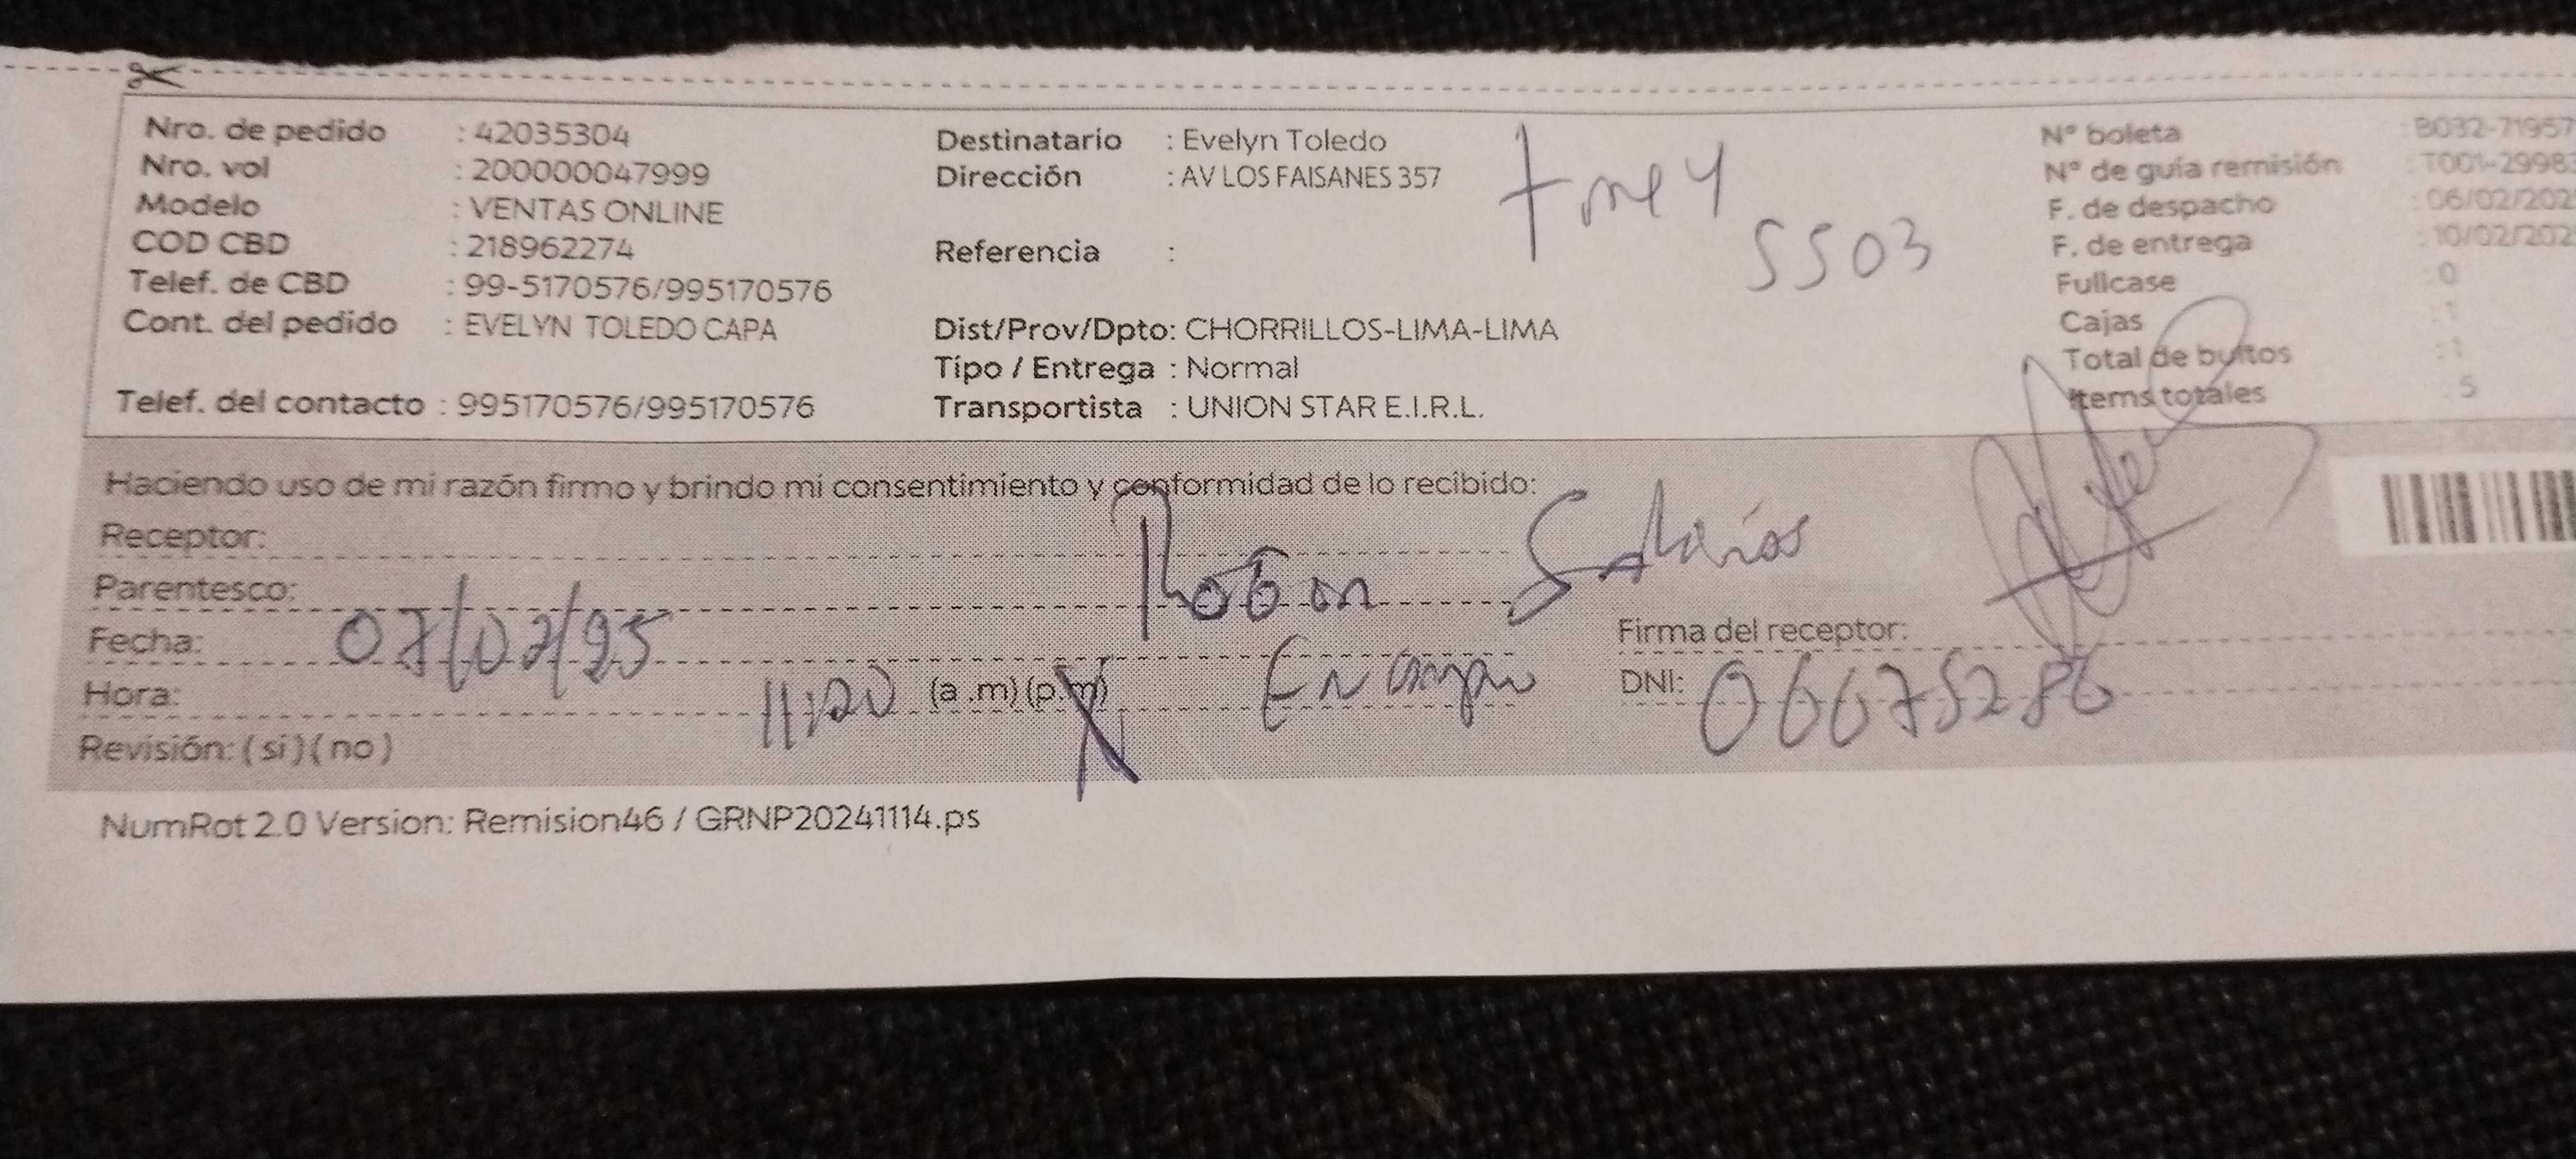 Nro. de pedido : 42035304
Nro. vol : 200000047999
Modelo : VENTAS ONLINE
COD CBD : 218962274
Telef. de CBD : 99-5170576/995170576
Cont. del pedido : EVELYN TOLEDO CAPA
Telef. del contacto : 995170576/995170576
Destinatario : Evelyn Toledo
Dirección : AV LOS FAISANES 357
Referencia :
Dist/Prov/Dpto: CHORRILLOS-LIMA-LIMA
Tipo / Entrega : Normal
Transportista : UNION STAR E.I.R.L.
5503
Nº boleta : B032-71957
Nº de guía remisión : T001-2998
F. de despacho : 06/02/202
F. de entrega : 10/02/202
Fullcase : 0
Cajas : 1
Total de bultos : 1
Items totales : 5
Haciendo uso de mi razón firmo y brindo mi consentimiento y conformidad de lo recibido:
Receptor:
Parentesco:
Fecha: 07/02/25
Hora: 11:20 (a .m) (p.m)
Revisión: ( si ) ( no )
Firma del receptor:
DNI: 06675286
NumRot 2.0 Version: Remision46 / GRNP20241114.ps